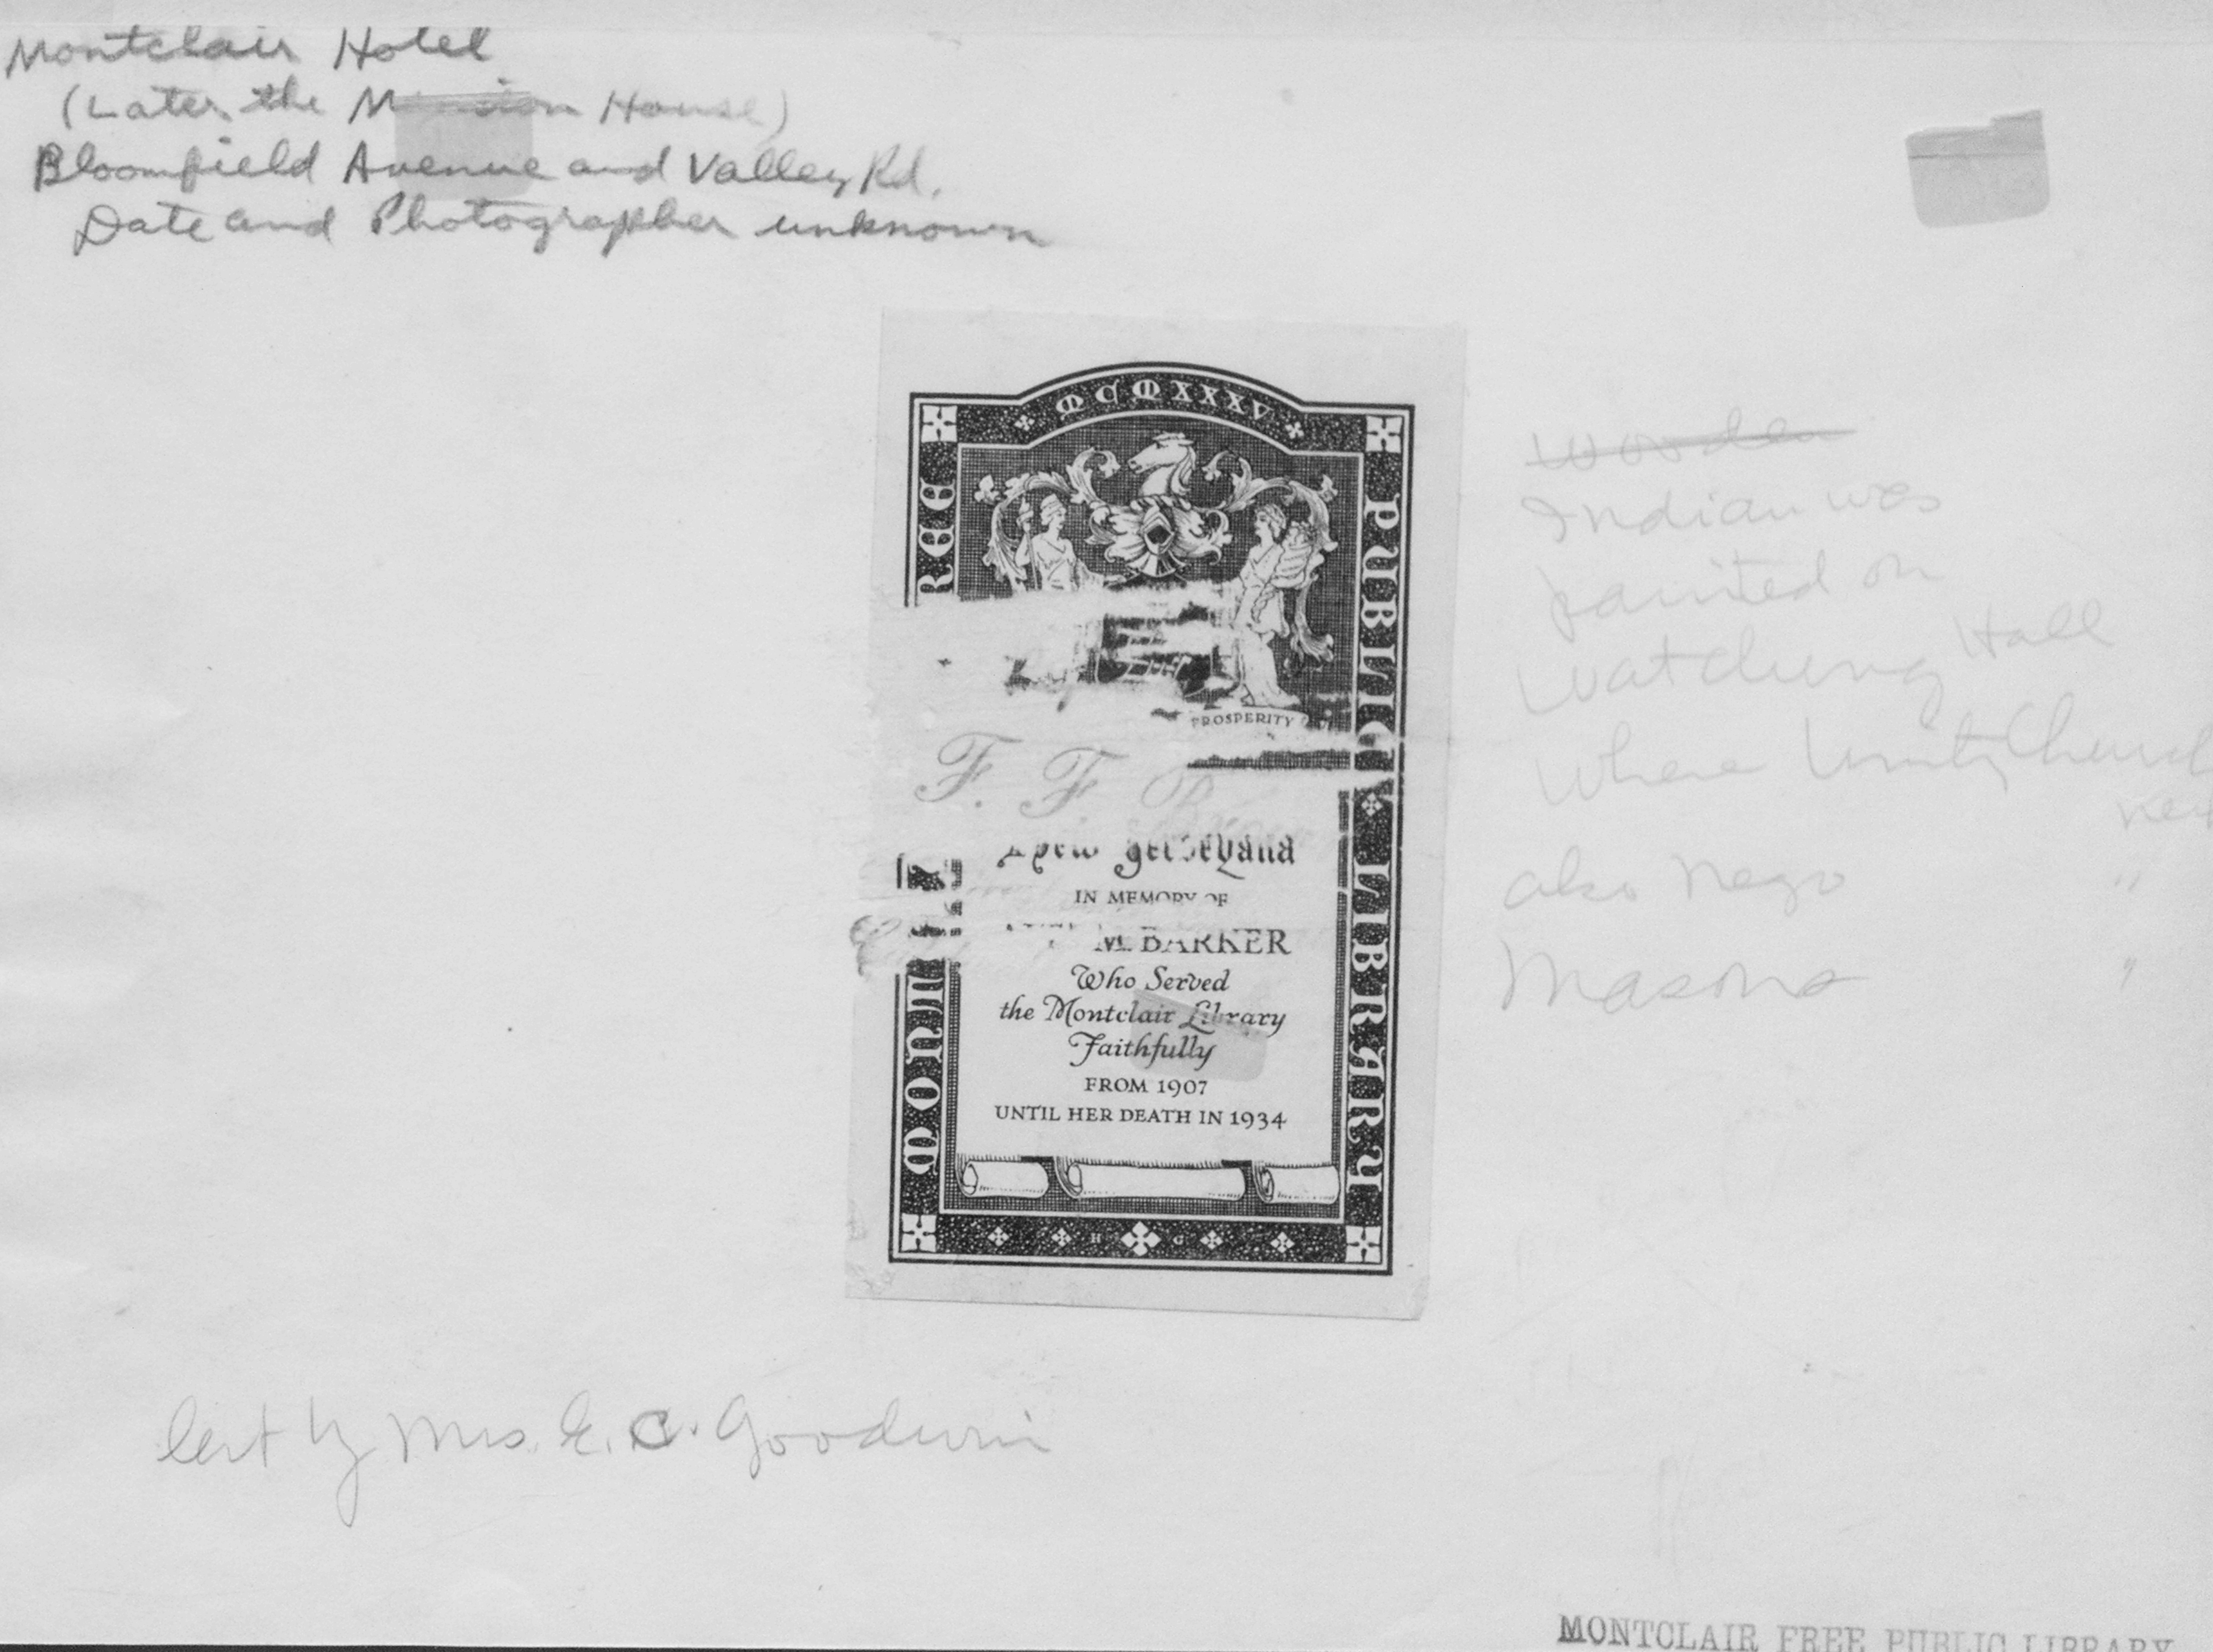 Montclair Hotel
(Later the Mansion House)
Bloomfield Avenue and Valley Rd.
Date and Photographer unknown
MCMXXXV
MONTCLAIR FREE
PUBLIC LIBRARY
PROSPERITY
F. F.
New Jerseyana
IN MEMORY OF
M. BARKER
Who Served
the Montclair Library
Faithfully
FROM 1907
UNTIL HER DEATH IN 1934
H G
wooden
Indian was
painted on
Watchung Hall
where Unity Church
also Negro "
Masons "
lent by Mrs. E. C. Goodwin
MONTCLAIR FREE PUBLIC LIBRARY